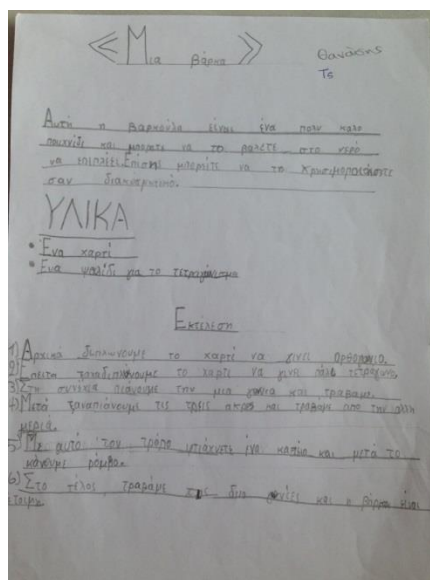 <<Μια βάρκα>>
Θανάσης
Τς
Αυτή η βαρκούλα είναι ένα πολυ καλο
παιχνίδι και μπορείτε να το βαλετε στο νερό
να επιπλέξει. Επίσης μπορείτε να το χρησιμοποιήσετε
σαν διακοσμητικό.
ΥΛΙΚΑ
• Ένα χαρτί
• Ένα ψαλίδι για το τετραγώνισμα
Εκτέλεση
1) Αρχικά διπλώνουμε το χαρτί να γίνει ορθογώνιο.
2) Έπειτα ξαναδιπλώνουμε το χαρτι να γινει πάλι τετράγωνο.
3) Στη συνέχεια πιάνουμε την μια γωνια και τραβάμε.
4) Μετά ξαναπιάνουμε τις τρεις άκρες και τραβάμε απο την αλλη
μερια.
5) Με αυτό τον τρόπο φτιάχνετε ένα καπέλο και μετά το
κάνουμε ρόμβο.
6) Στο τέλος τραβάμε τις δυο γωνίες και η βάρκα είναι
έτοιμη